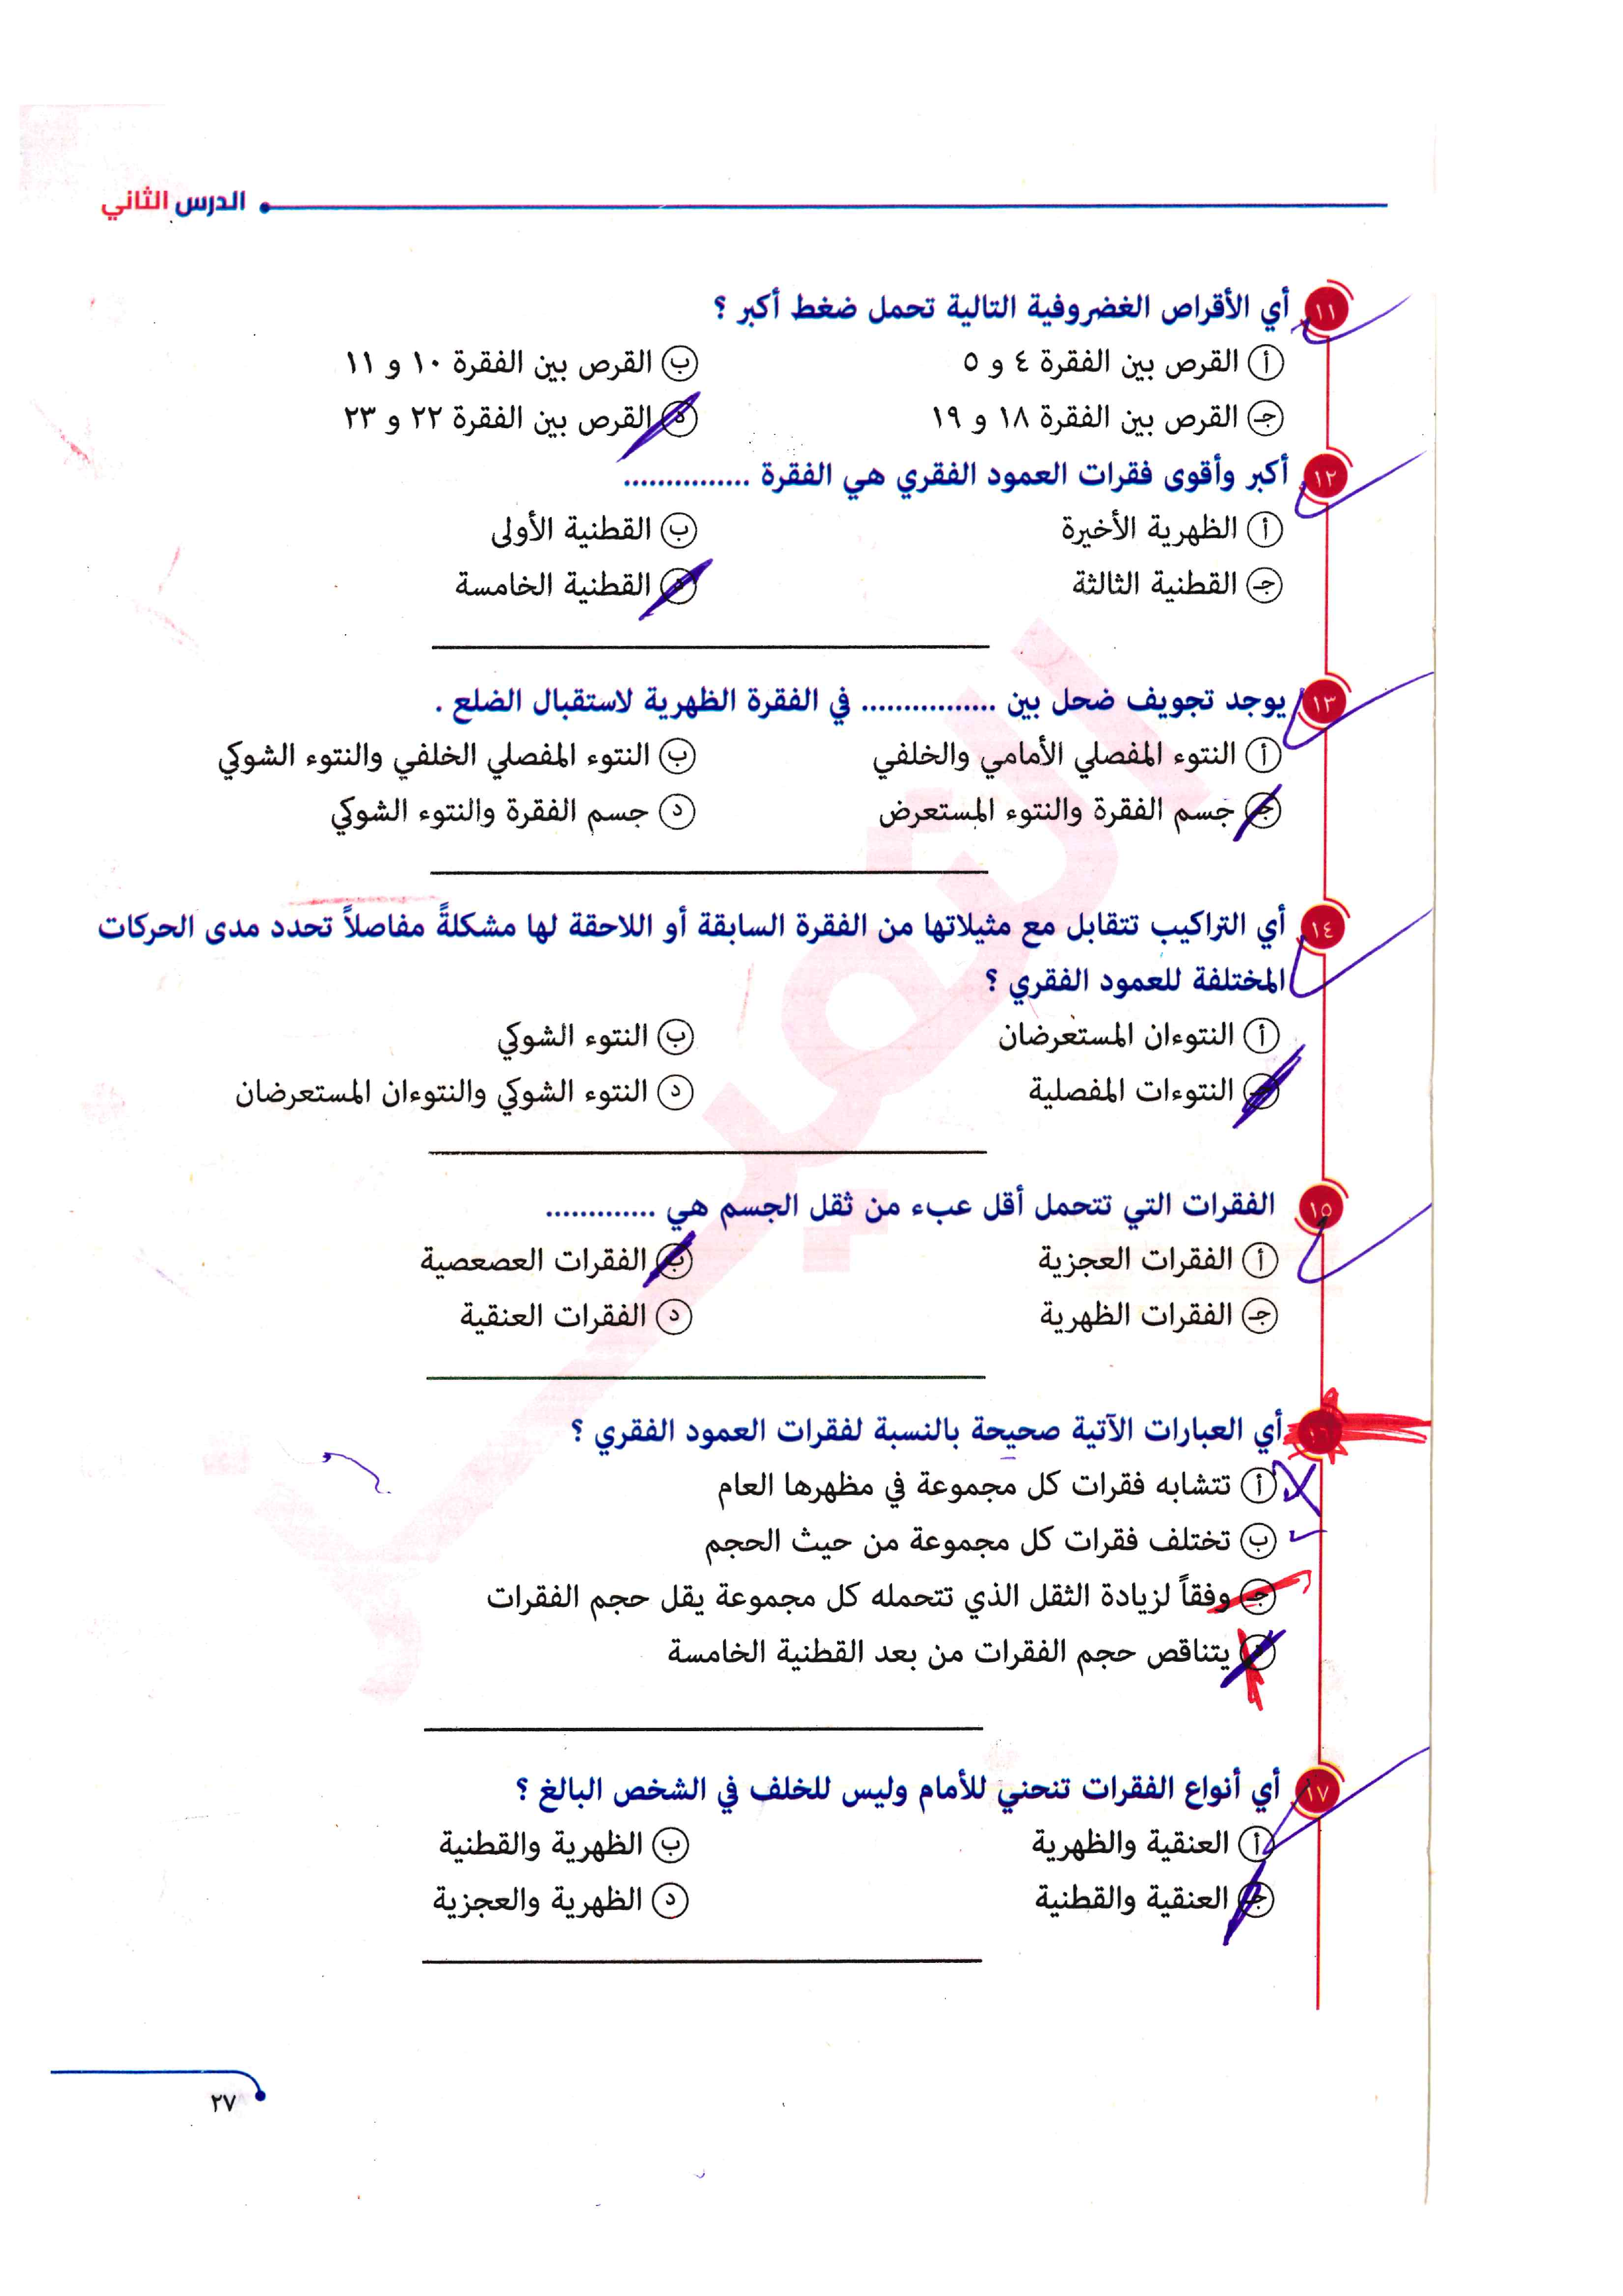 الدرس الثاني
١١ أي الأقراص الغضروفية التالية تحمل ضغط أكبر ؟
أ القرص بين الفقرة ٤ و ٥
ب القرص بين الفقرة ١٠ و ١١
جـ القرص بين الفقرة ١٨ و ١٩
د القرص بين الفقرة ٢٢ و ٢٣
١٢ أكبر وأقوى فقرات العمود الفقري هي الفقرة ...............
أ الظهرية الأخيرة
ب القطنية الأولى
جـ القطنية الثالثة
د القطنية الخامسة
١٣ يوجد تجويف ضحل بين ................ في الفقرة الظهرية لاستقبال الضلع .
أ النتوء المفصلي الأمامي والخلفي
ب النتوء المفصلي الخلفي والنتوء الشوكي
جـ جسم الفقرة والنتوء المستعرض
د جسم الفقرة والنتوء الشوكي
١٤ أي التراكيب تتقابل مع مثيلاتها من الفقرة السابقة أو اللاحقة لها مشكلةً مفاصلاً تحدد مدى الحركات
المختلفة للعمود الفقري ؟
أ النتوءان المستعرضان
ب النتوء الشوكي
جـ النتوءات المفصلية
د النتوء الشوكي والنتوءان المستعرضان
١٥ الفقرات التي تتحمل أقل عبء من ثقل الجسم هي .............
أ الفقرات العجزية
ب الفقرات العصعصية
جـ الفقرات الظهرية
د الفقرات العنقية
١٦ أي العبارات الآتية صحيحة بالنسبة لفقرات العمود الفقري ؟
أ تتشابه فقرات كل مجموعة في مظهرها العام
ب تختلف فقرات كل مجموعة من حيث الحجم
جـ وفقاً لزيادة الثقل الذي تتحمله كل مجموعة يقل حجم الفقرات
د يتناقص حجم الفقرات من بعد القطنية الخامسة
١٧ أي أنواع الفقرات تنحني للأمام وليس للخلف في الشخص البالغ ؟
أ العنقية والظهرية
ب الظهرية والقطنية
جـ العنقية والقطنية
د الظهرية والعجزية
٢٧